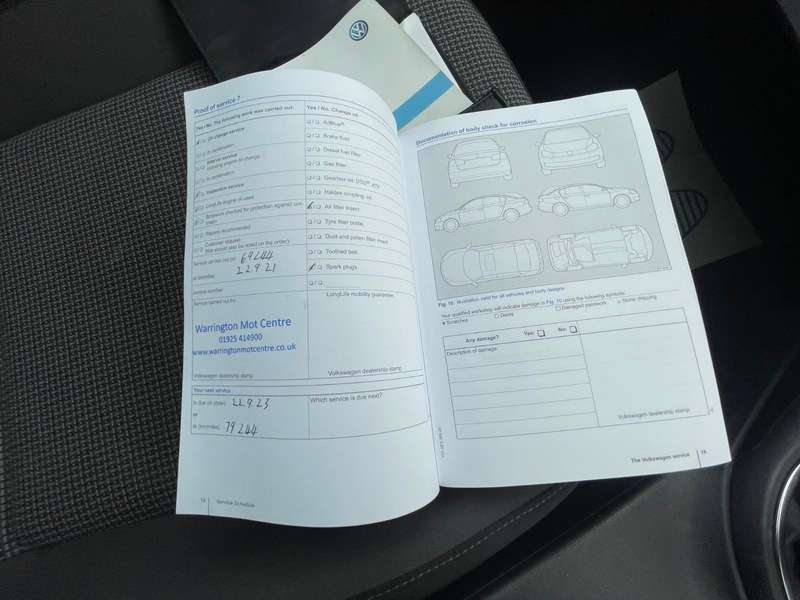 Proof of service 7
Yes / No. The following work was carried out:
Oil change service
In combination:
Interval service
including engine oil change
In combination:
Inspection service
LongLife engine oil used
Bodywork checked for protection against corrosion
Repairs recommended
Customer request
(this should also be noted on the order)
Service carried out on:
69244
at km/miles:
22.9.21
Invoice number:
Service carried out by:
Warrington Mot Centre
01925 414900
www.warringtonmotcentre.co.uk
Volkswagen dealership stamp
Your next service
is due on (date): 22.9.23
or
at (km/miles): 79244
Yes / No. Change of:
AdBlue®
Brake fluid
Diesel fuel filter
Gas filter
Gearbox oil, DSG®
Air filter insert
Tyre filler bottle
Dust and pollen filter insert
Toothed belt
Spark plugs
LongLife mobility guarantee:
Volkswagen dealership stamp
Which service is due next?
Service Schedule
VW
Documentation of body check for corrosion
Fig. 10 Illustration valid for all vehicles and body designs.
Your qualified workshop will indicate damage in Fig. 10 using the following symbols:
Scratches
Dents
Damaged paintwork
Stone chipping
Any damage? Yes: No:
Description of damage:
Volkswagen dealership stamp
The Volkswagen service